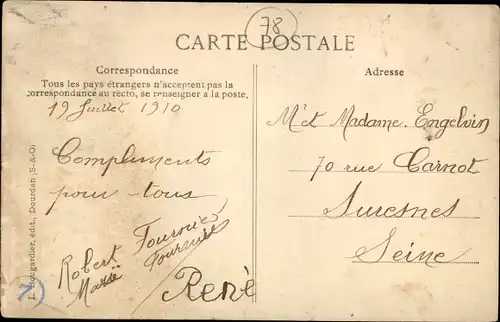 78
CARTE POSTALE
Correspondance
Tous les pays étrangers n'acceptent pas la
correspondance au recto, se renseigner a la poste.
19 Juillet 1910
Compliments
pour tous
Robert Fournier
Marie Fournier
René
Adresse
Mr et Madame. Engelvin
70 rue Carnot
Suresnes
Seine
édit., Dourdan (S.-&-O)